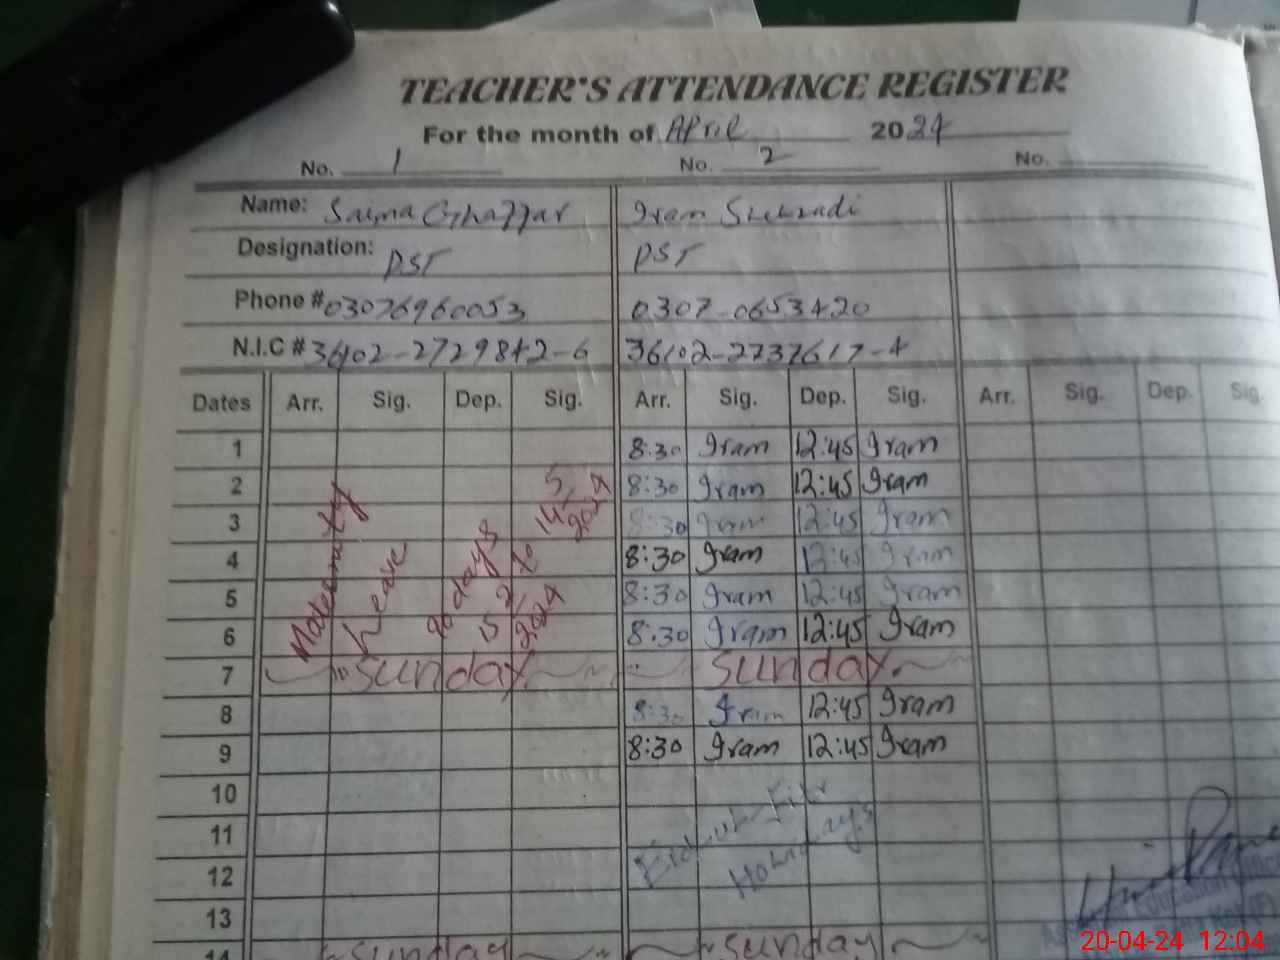 TEACHER'S ATTENDANCE REGISTER
For the month of April 2024
No. 1 No. 2 No.
Name: Saima Ghaffar Iram Shehzadi
Designation: PST PST
Phone # 03076960053 0307-0653420
N.I.C # 36402-2729842-6 36102-2737617-4
Dates Arr. Sig. Dep. Sig. Arr. Sig. Dep. Sig. Arr. Sig. Dep. Sig
1 8:30 Iram 12:45 Iram
2 8:30 Iram 12:45 Iram
3 8:30 Iram 12:45 Iram
4 8:30 Iram 12:45 Iram
5 8:30 Iram 12:45 Iram
6 8:30 Iram 12:45 Iram
Maternity Leave 90 days 15/2/2024 to 14/5/2024
7 Sunday Sunday
8 8:30 Iram 12:45 Iram
9 8:30 Iram 12:45 Iram
10
11
12
Eid ul Fitr Holidays
13
14 Sunday Sunday
Education
20-04-24 12:04